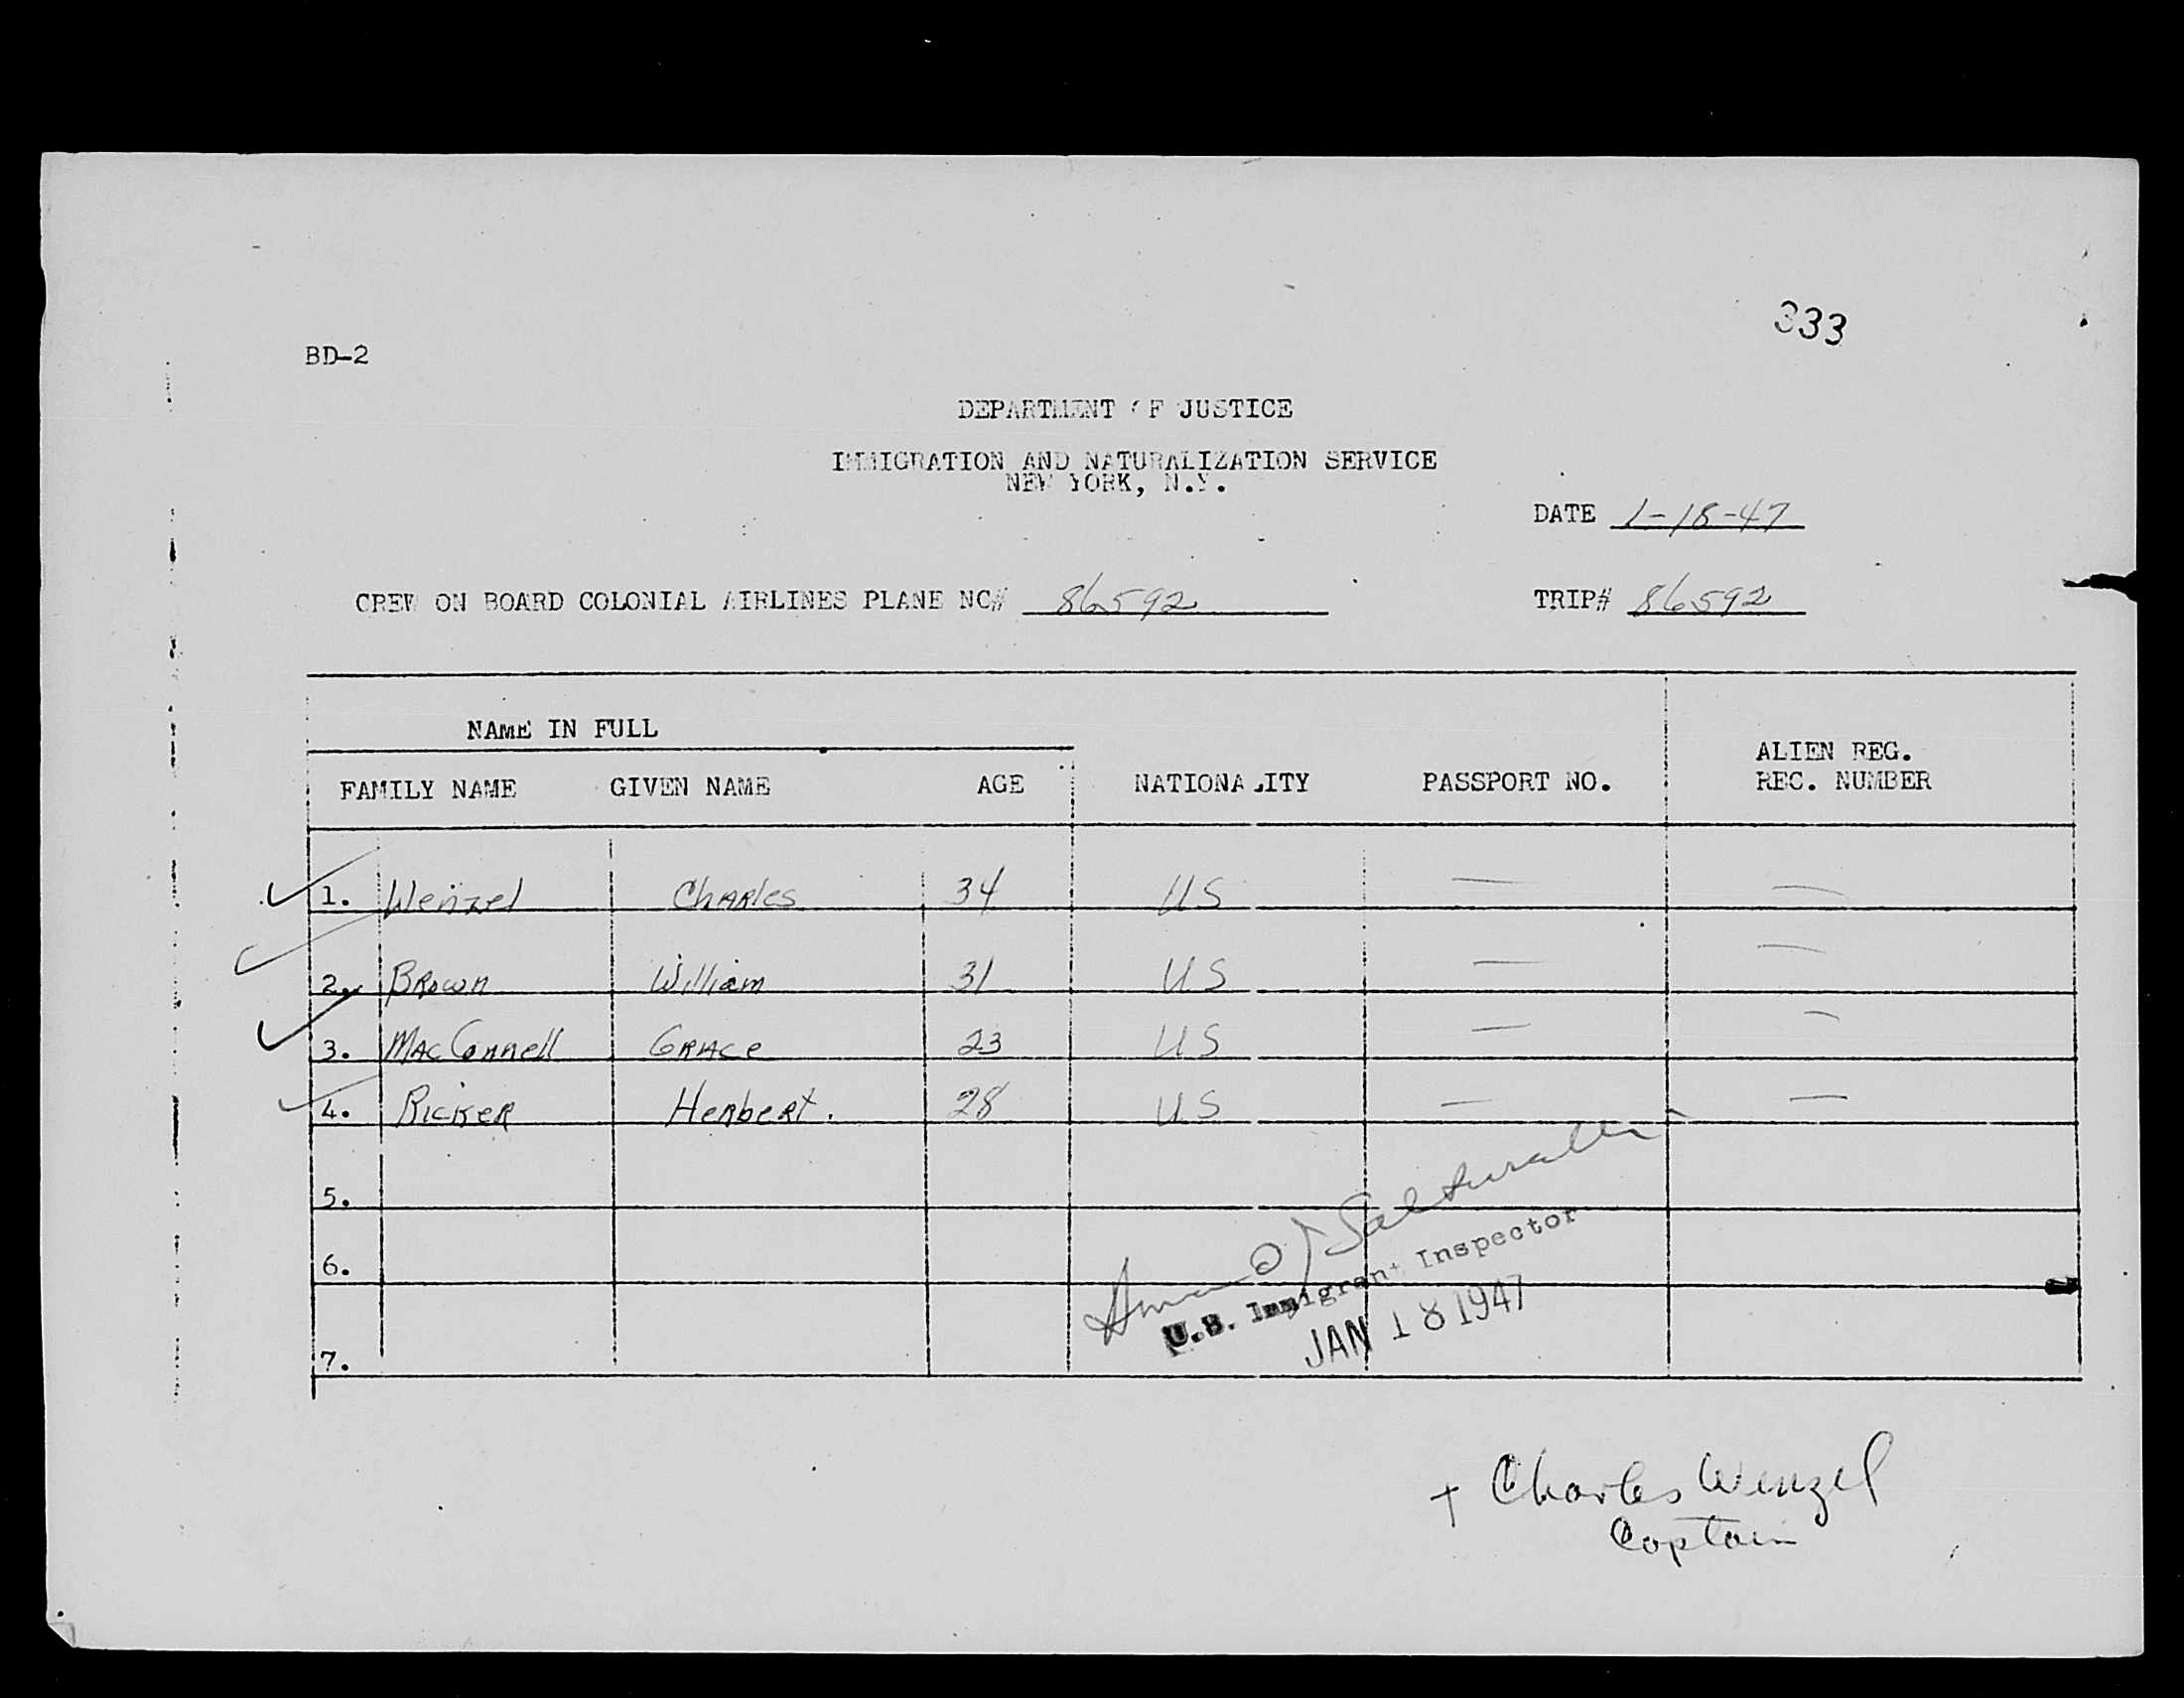 333
BD-2
DEPARTMENT OF JUSTICE
IMMIGRATION AND NATURALIZATION SERVICE
NEW YORK, N.Y.
DATE 1-18-47
CREW ON BOARD COLONIAL AIRLINES PLANE NC# 86592 TRIP# 86592
NAME IN FULL
ALIEN REG.
FAMILY NAME GIVEN NAME AGE NATIONALITY PASSPORT NO. REC. NUMBER
1. Wenzel Charles 34 US — —
2. Brown William 31 US — —
3. MacConnell Grace 23 US — —
4. Ricker Herbert. 28 US — —
5.
6.
7.
U.S. Immigrant Inspector
JAN 18 1947
+ Charles Wenzel
Captain